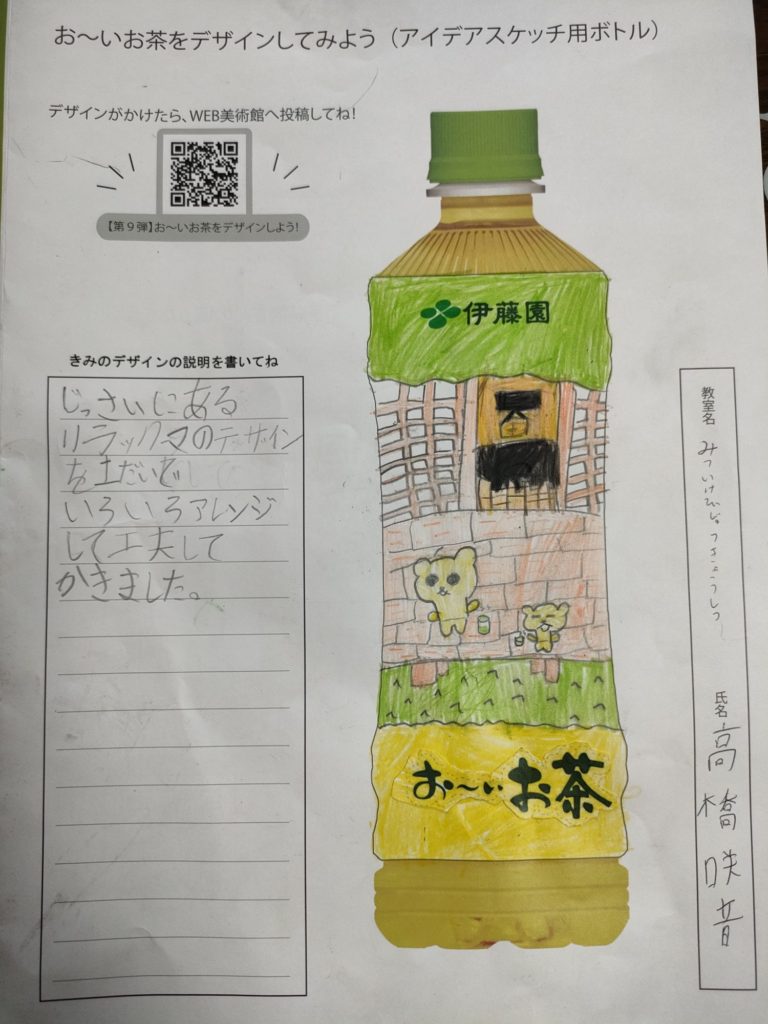 お〜いお茶をデザインしてみよう（アイデアスケッチ用ボトル）
デザインがかけたら、WEB美術館へ投稿してね！
【第９弾】お〜いお茶をデザインしよう！
きみのデザインの説明を書いてね
じっさいにある
リラックマのデザイン
を土だいで
いろいろアレンジ
して工夫して
かきました。
伊藤園
お〜いお茶
教室名
氏名
高橋咲音